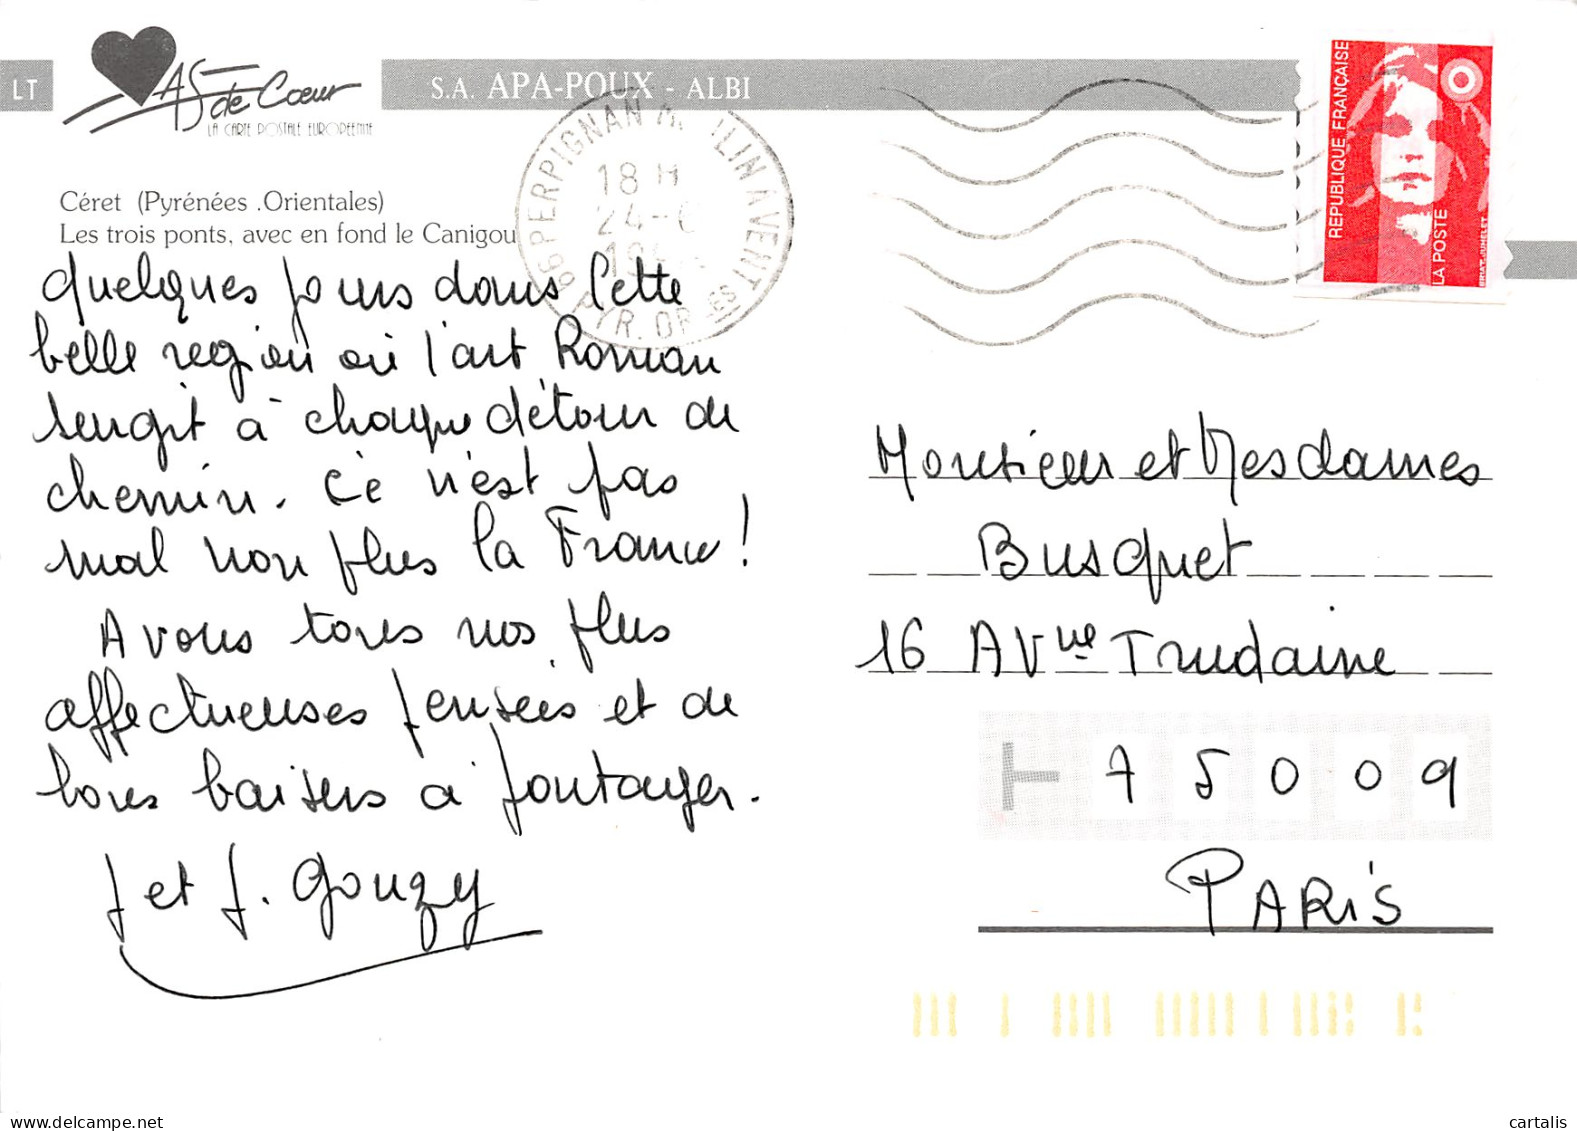 LT
AS de Cœur
LA CARTE POSTALE EUROPEENNE
S.A. APA-POUX - ALBI
66 PERPIGNAN M ULINAVENT
18 H
24-6
19
PYR. OR -ES
REPUBLIQUE FRANÇAISE
LA POSTE
Céret (Pyrénées .Orientales)
Les trois ponts, avec en fond le Canigou
Quelques jours dans cette
belle region où l'art Roman
surgit à chaque détour de
chemin. Ce n'est pas
mal non plus la France!
A vous tous nos plus
affectueuses pensées et de
bons baisers à partager.
J et J. Gouzy
Monsieur et Mesdames
Busquet
16 AVnue Trudaine
75009
PARIS
cartalis
delcampe.net